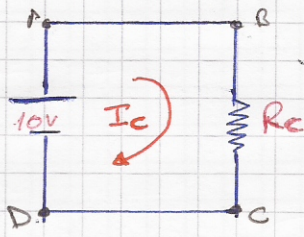 A
B
10V
Ic
Rc
D
C